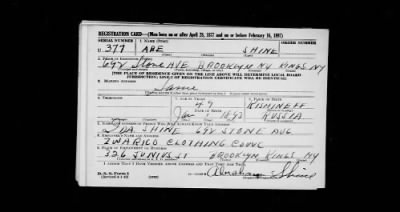 REGISTRATION CARD—(Men born on or after April 28, 1877 and on or before February 16, 1897)
SERIAL NUMBER
1. NAME (Print)
ORDER NUMBER
U 377 ABE SHINE
2. PLACE OF RESIDENCE (Print)
692 Stone AVE BROOKLYN NY KINGS NY
[THE PLACE OF RESIDENCE GIVEN ON THE LINE ABOVE WILL DETERMINE LOCAL BOARD
JURISDICTION; LINE 2 OF REGISTRATION CERTIFICATE WILL BE IDENTICAL]
3. MAILING ADDRESS
Same
4. TELEPHONE
5. AGE IN YEARS
6. PLACE OF BIRTH
49
KISHINEFF
DATE OF BIRTH
Jan 1 1893 RUSSIA
7. NAME AND ADDRESS OF PERSON WHO WILL ALWAYS KNOW YOUR ADDRESS
IDA SHINE 692 STONE AVE
8. EMPLOYER'S NAME AND ADDRESS
CLOTHING
9. PLACE OF EMPLOYMENT OR BUSINESS
326 JUNIUS ST BROOKLYN KINGS NY
I AFFIRM THAT I HAVE VERIFIED ABOVE ANSWERS AND THAT THEY ARE TRUE.
D. S. S. Form 1
Abraham Shine